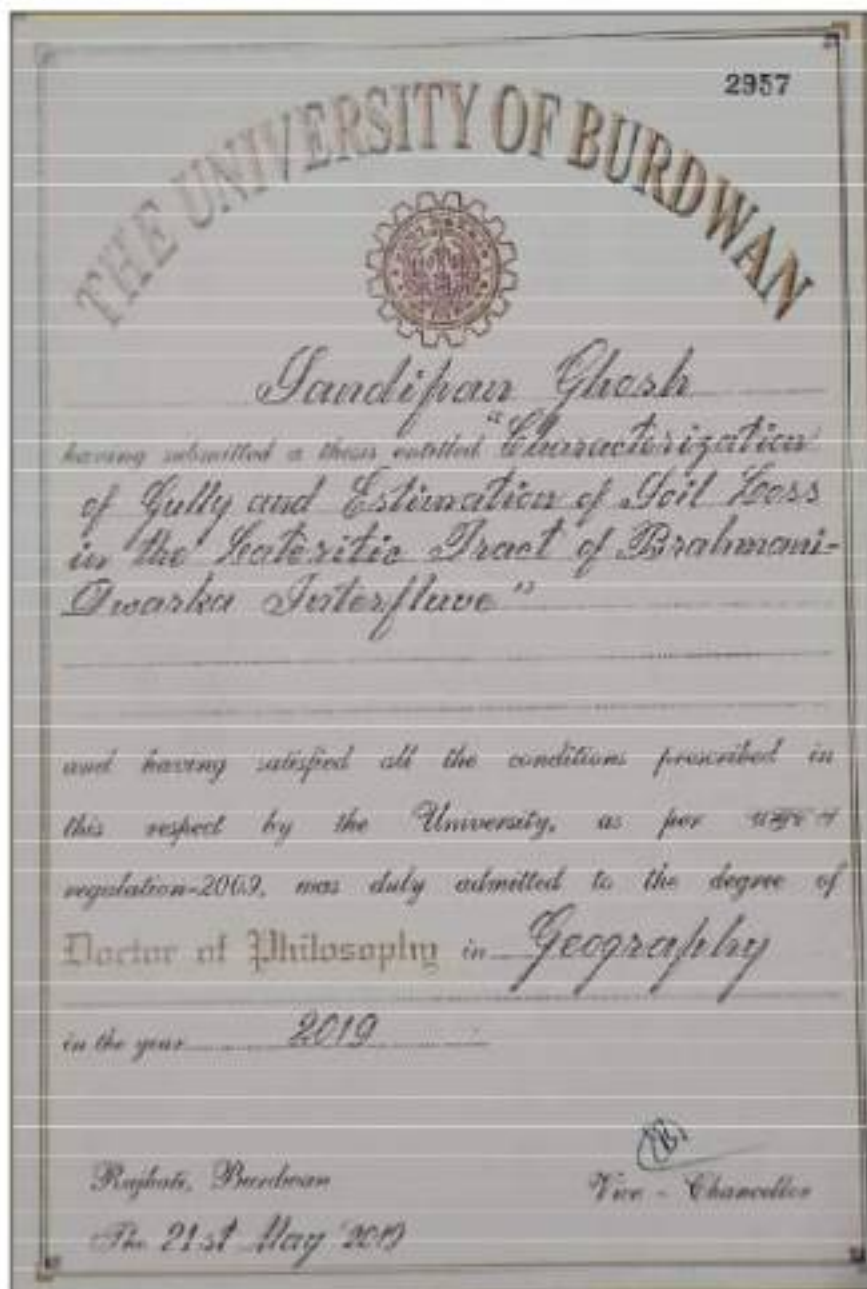 2957
THE UNIVERSITY OF BURDWAN
Sandipan Ghosh
having submitted a thesis entitled "Characterization
of Gully and Estimation of Soil Loss
in the Lateritic Tract of Brahmani-
Dwarka Interfluve"
and having satisfied all the conditions prescribed in
this respect by the University, as per
regulation-2009, was duly admitted to the degree of
Doctor of Philosophy in Geography
in the year 2019
Rajbati, Burdwan
Vice - Chancellor
The 21st May 2019